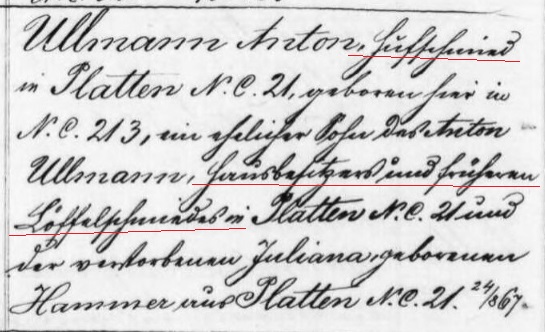 Ullmann Anton, Hufschmied
in Platten N.C. 21, geboren hier in
N.C. 213, ein ehelicher Sohn des Anton
Ullmann, Hausbesitzers und früheren
Löffelschmiedes in Platten N.C. 21 und
der verstorbenen Juliana, geborenen
Hammer aus Platten N.C. 21. 24/8 67.